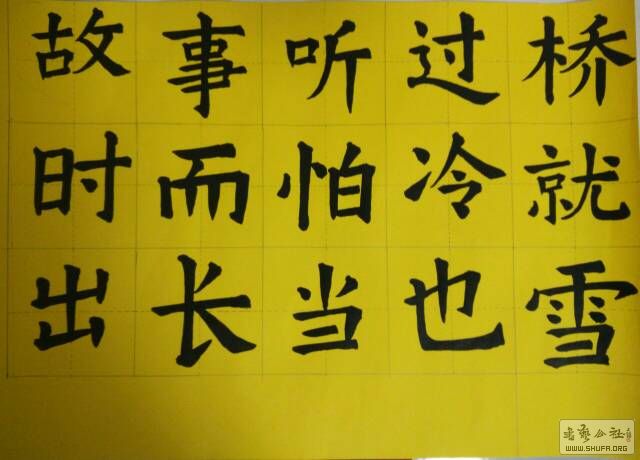 故事听过桥
时而怕冷就
出长当也雪
书艺公社
WWW.SHUFA.ORG